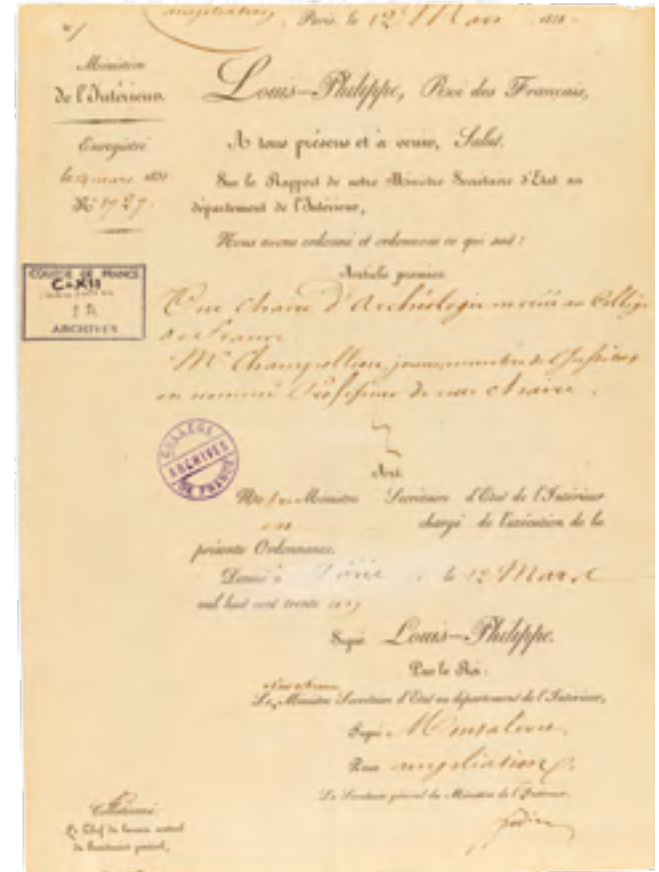 ampliation
Paris, le 12 Mars 183
Ministère
de l'Intérieur.
Enregistré
le mars 1831
N° 1727.
Louis-Philippe, Roi des Français,
A tous présens et à venir, Salut.
Sur le Rapport de notre Ministre Secrétaire d'Etat au
département de l'Intérieur,
Nous avons ordonné et ordonnons ce qui suit :
Article premier.
COLLEGE DE FRANCE
C-XII
ARCHIVES
Une chaire d'Archéologie est créée au Collège
de France.
Mr Champollion jeune, membre de l'Institut
est nommé Professeur de cette chaire.
COLLEGE
ARCHIVES
DE FRANCE
Art.
Ministre Secrétaire d'Etat de l'Intérieur
est chargé de l'exécution de la
présente Ordonnance.
Donné à Paris, le 12 Mars
mil huit cent trente
Signé Louis-Philippe.
Par le Roi :
Le Ministre Secrétaire d'Etat au département de l'Intérieur,
Signé Montalivet.
Pour ampliation,
Le Secrétaire général du Ministère de l'Intérieur.
Collationné.
Le Chef du bureau central
du Secrétariat général,